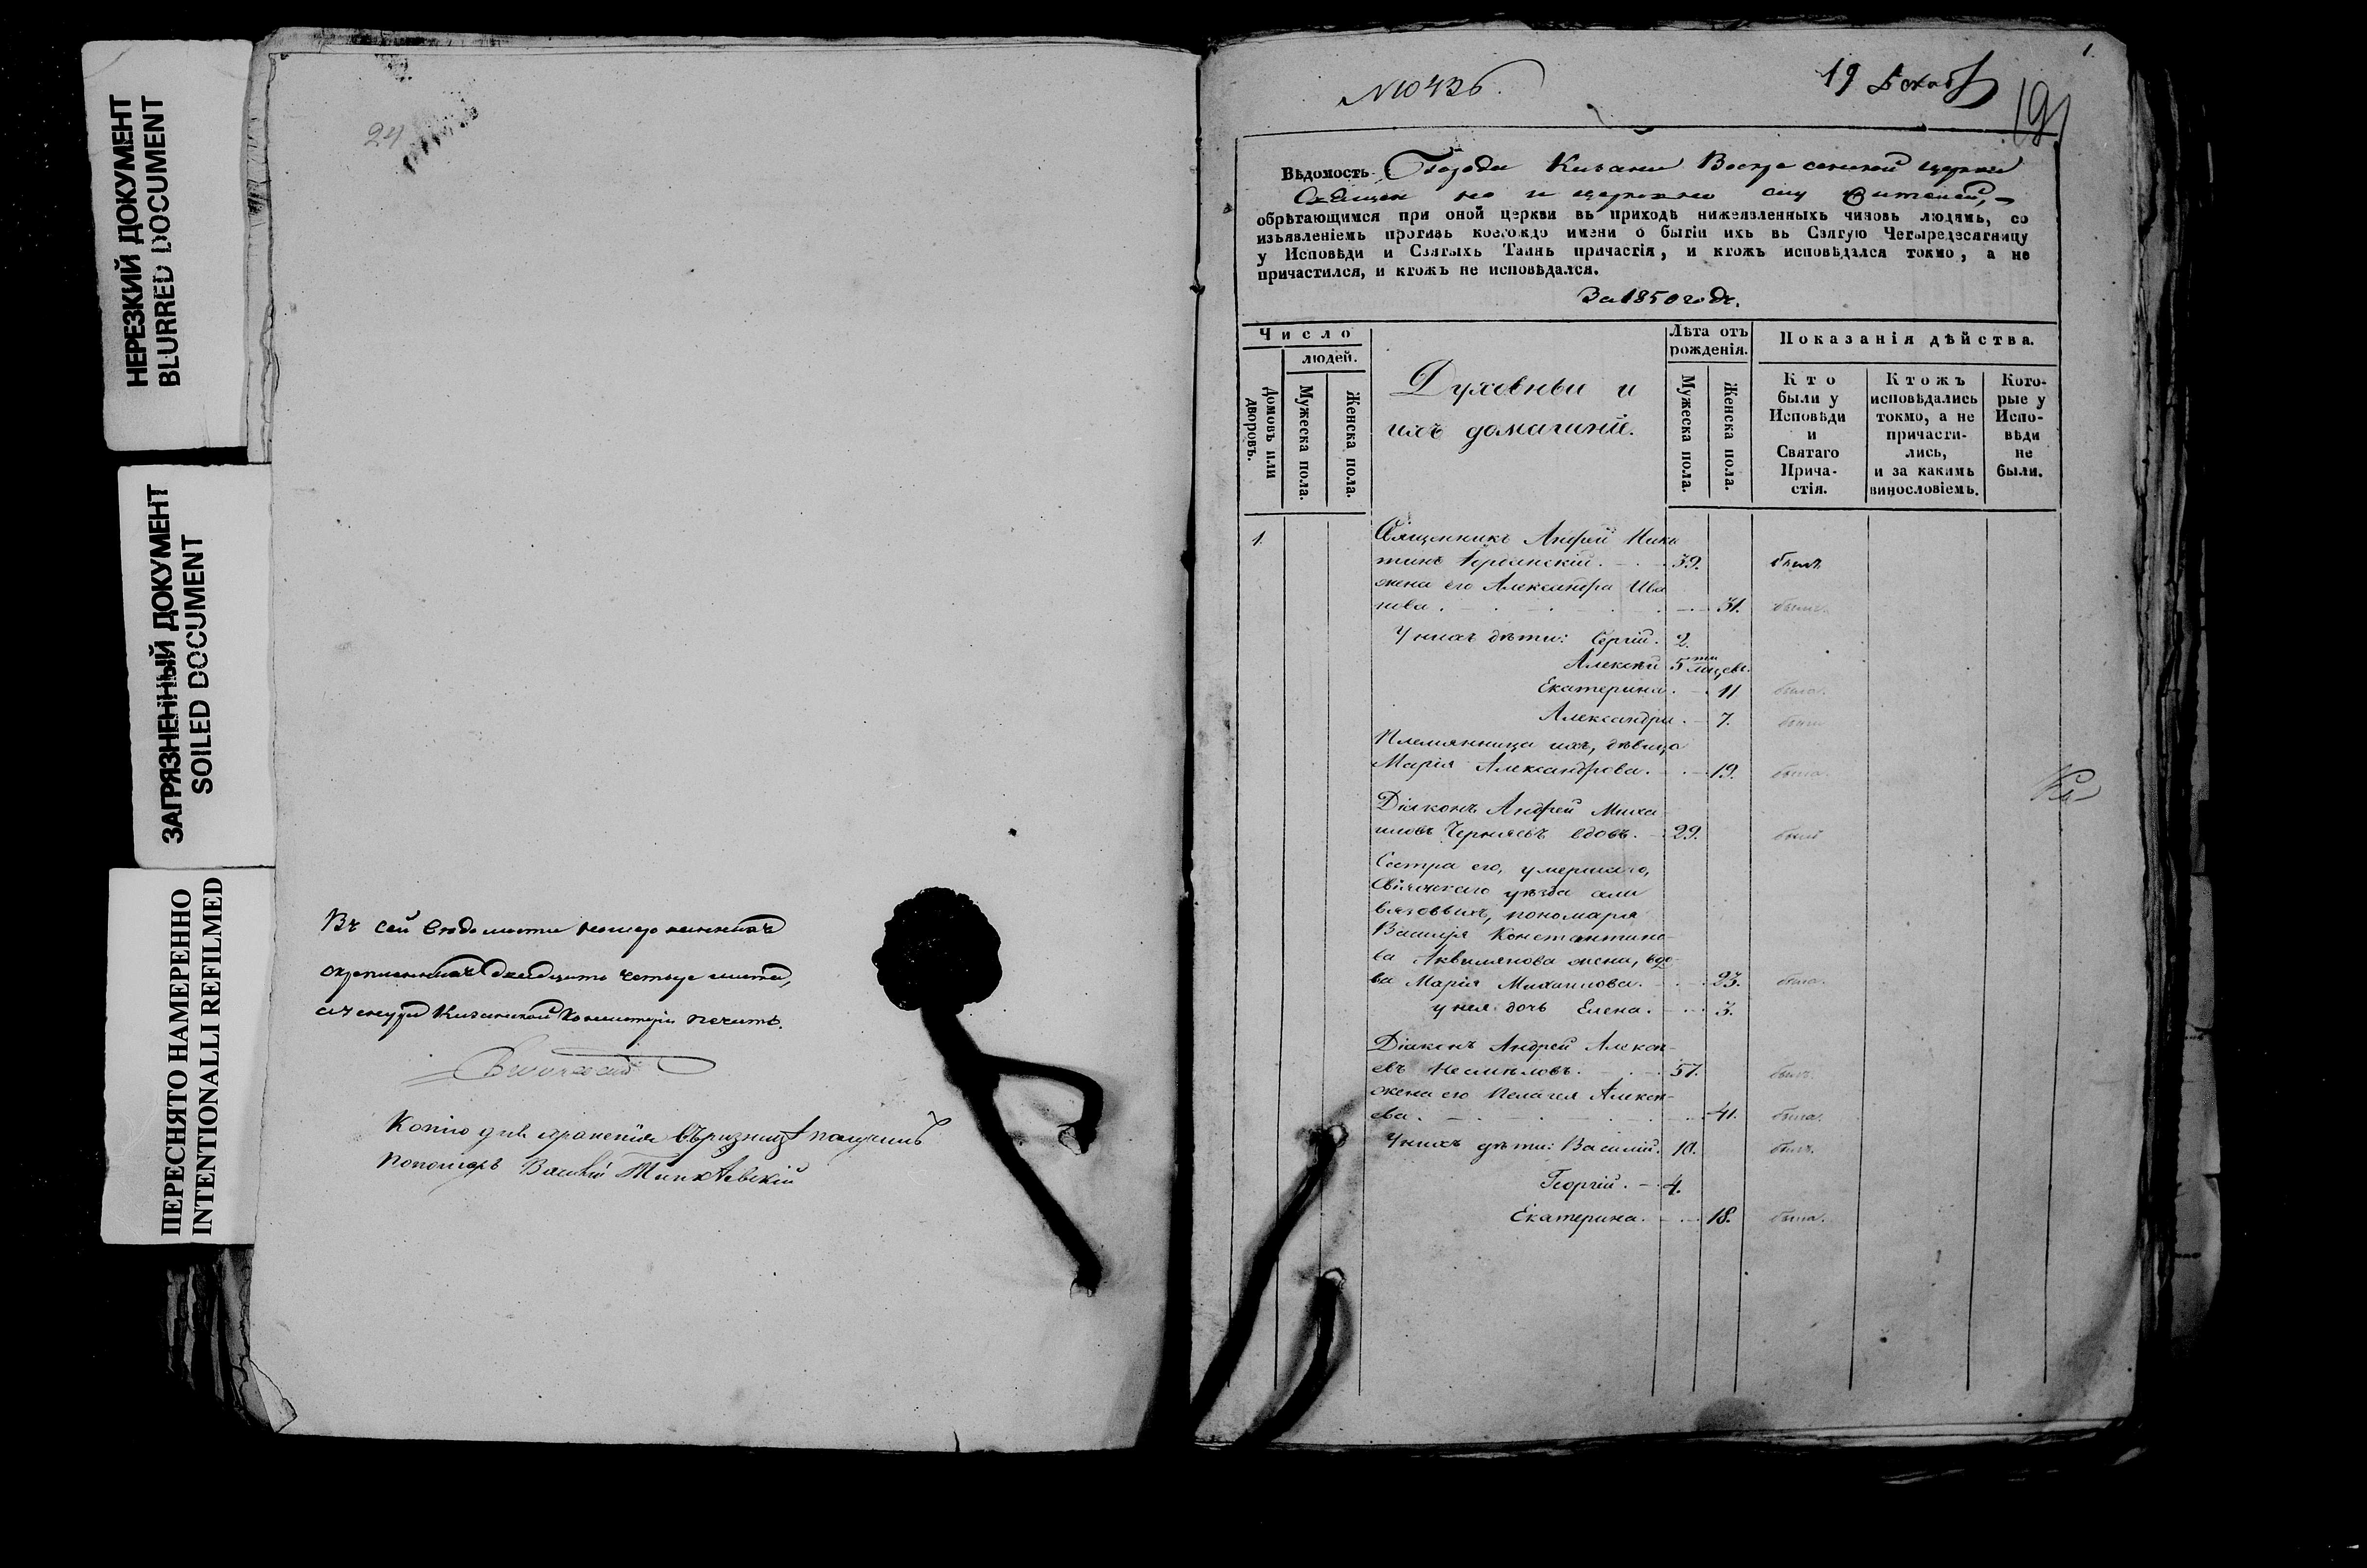 НЕРЕЗКИЙ ДОКУМЕНТ
BLURRED DOCUMENT
ЗАГРЯЗНЕННЫЙ ДОКУМЕНТ
SOILED DOCUMENT
ПЕРЕСНЯТО НАМЕРЕННО
INTENTIONALLI REFILMED
24
Въ сей ведомости
двадцать четыре листа,
Казанской Консисторіи печать.
Копію для храненія въ ризницу получилъ
Пономарь Василій
1.
19
191
Вѣдомость Города Казани Воскресенской церкви
обрѣтающимся при оной церкви въ приходѣ нижеявленныхъ чиновъ людямъ, со
изъявленіемъ противъ коегождо имени о бытіи ихъ въ Святую Четыредесятницу
у Исповѣди и Святыхъ Таинъ причастія, и ктожъ исповѣдался токмо, а не
причастился, и ктожъ не исповѣдался.
За 1850 годъ.
Число
людей.
Домовъ или дворовъ.
Мужеска пола.
Женска пола.
Духовныи и
ихъ домашніи.
Лѣта отъ
рожденія.
Мужеска пола.
Женска пола.
Показанія дѣйства.
Кто
были у
Исповѣди
и
Святаго
Прича-
стія.
Ктожъ
исповѣдались
токмо, а не
причасти-
лись,
и за какимъ
винословіемъ.
Кото-
рые у
Испо-
вѣди
не
были.
1. Священникъ Андрей Ники
тинъ 39. былъ
жена его Александра Ива
нова. 31. была.
У нихъ дѣти: Сергій. 2.
Алексѣй 5ти мѣсцевъ.
Екатерина. 11 была.
Александра. 7. была
Племянница ихъ, дѣвица
Марія Александрова. 19. была.
Діаконъ Андрей Миха
иловъ Черняевъ вдовъ. 29. былъ
Сестра его, умершаго,
Свіяжскаго уѣзда
пономаря
Василія Константино-
ва жена, вдо-
ва Марія Михаилова. 23. была.
у нея дочь Елена. 3.
Діаконъ Андрей Алексѣ-
евъ Несмѣловъ. 57. былъ.
жена его Пелагея Алексѣ-
ева. 41. была.
У нихъ дѣти: Василій. 10. былъ.
Георгій. 4.
Екатерина. 18. была.